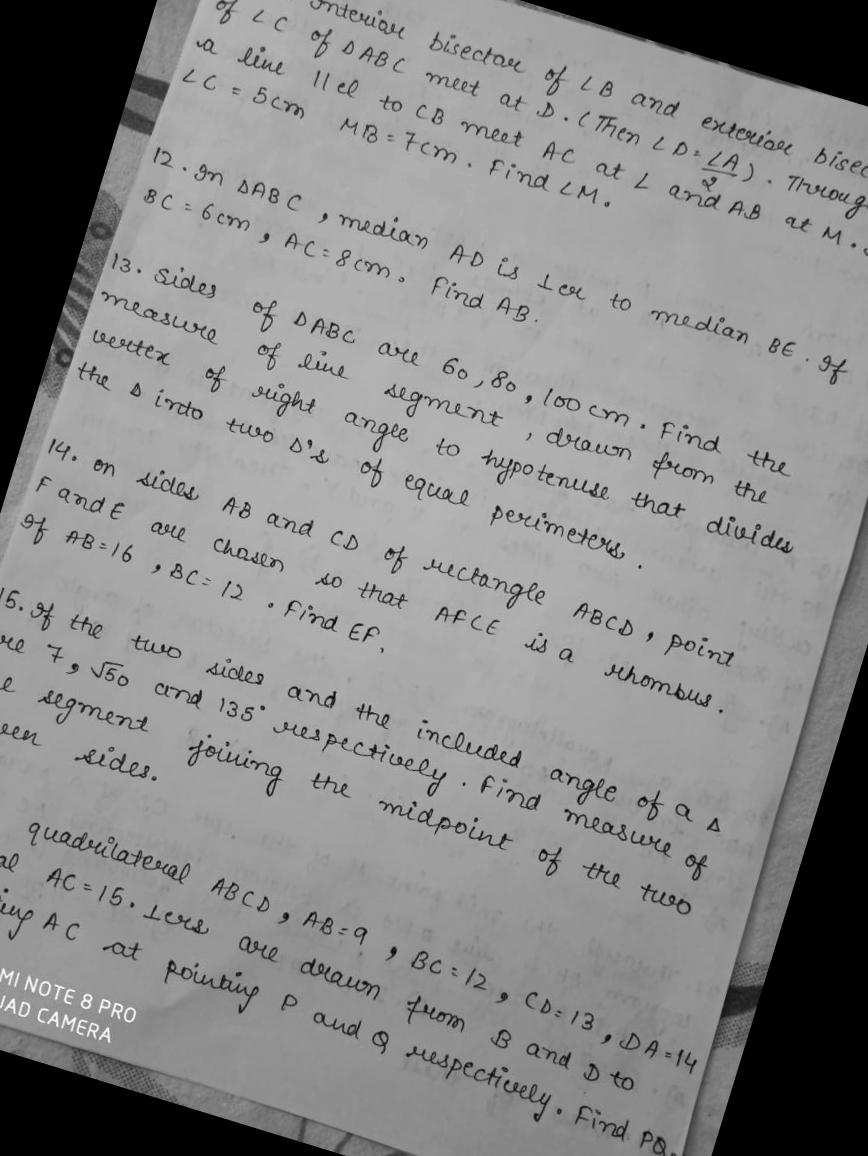 Interior bisector of ∠B and exterior
of ∠C of ΔABC meet at D. (Then ∠D = ∠A/2).
a line llel to CB meet AC at L and AB at M.
LC = 5cm MB = 7cm. Find LM.
12. In ΔABC, median AD is ⊥er to median BE. If
BC = 6cm, AC = 8cm. Find AB.
13. Sides of ΔABC are 60, 80, 100cm. Find the
measure of line segment, drawn from the
vertex of right angle to hypotenuse that divides
the Δ into two Δ's of equal perimeters.
14. on sides AB and CD of rectangle ABCD, point
F and E are chosen so that AFCE is a rhombus.
If AB = 16, BC = 12. Find EF.
15. If the two sides and the included angle of a Δ
7, √50 and 135° respectively. Find measure of
segment joining the midpoint of the two
sides.
quadrilateral ABCD, AB = 9, BC = 12, CD = 13, DA = 14
AC = 15. ⊥ers are drawn from B and D to
AC at pointing P and Q respectively. Find PQ.
MI NOTE 8 PRO
CAMERA